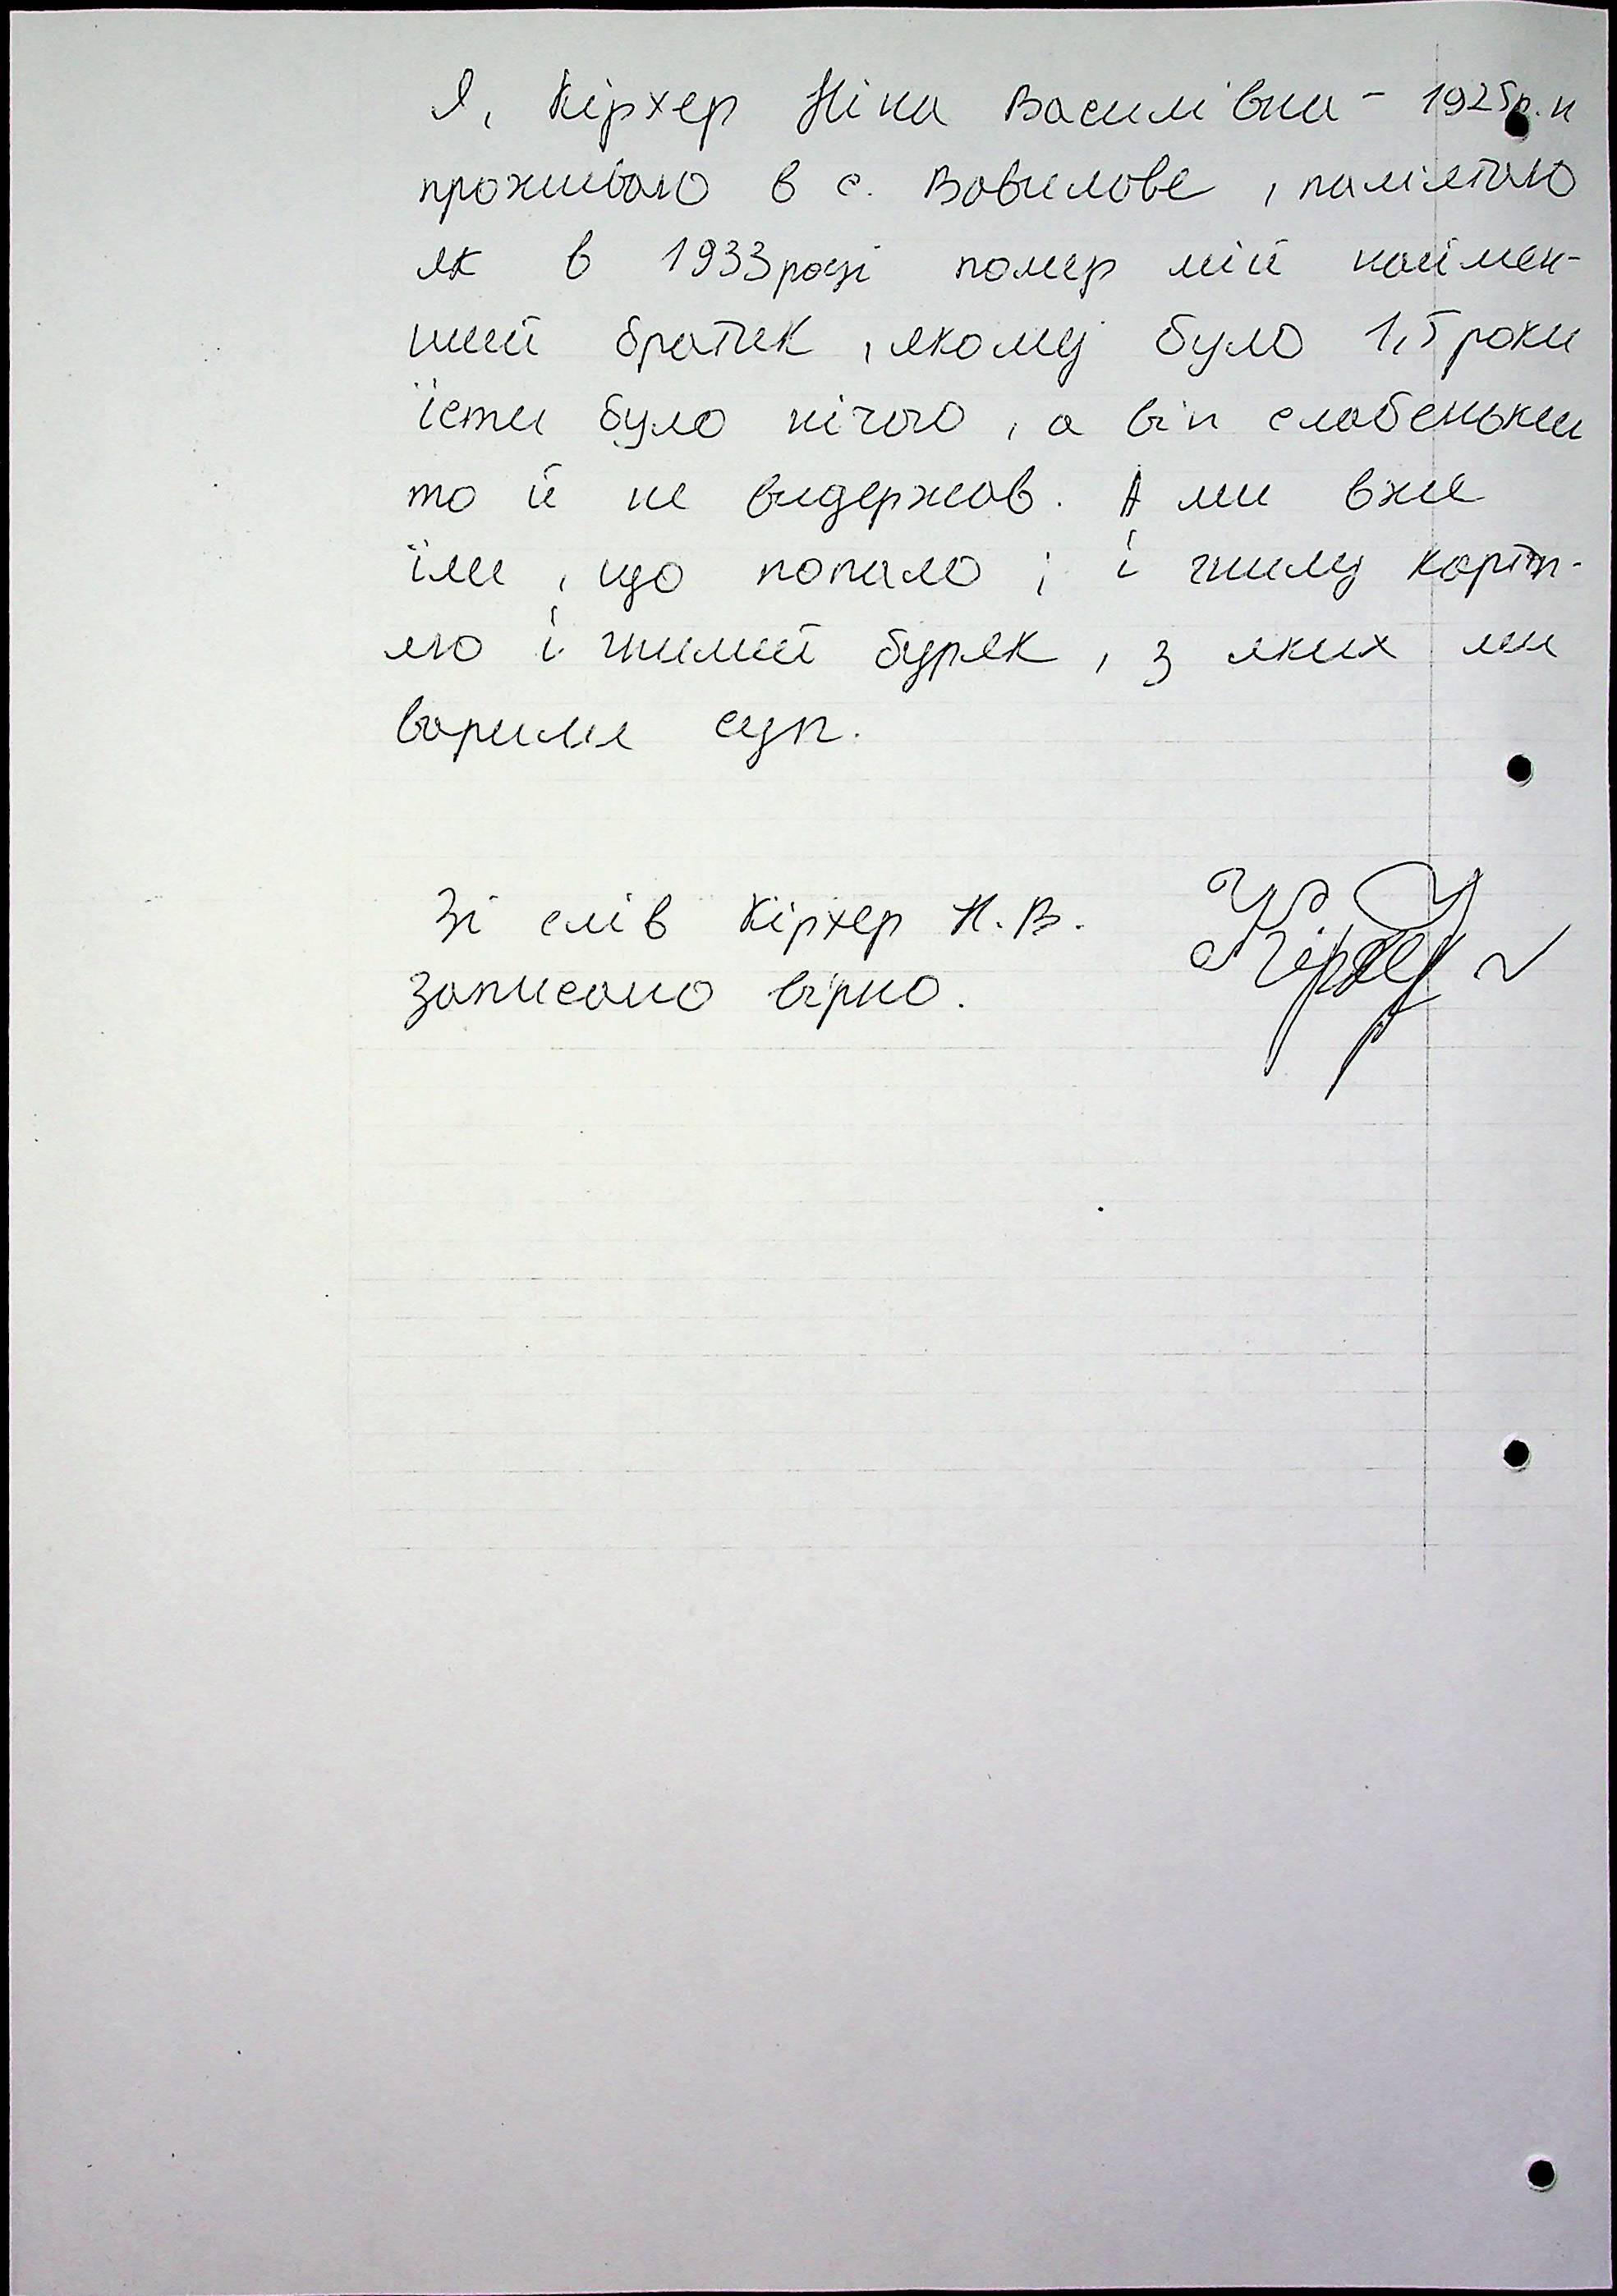 Я, Кірхер Ніна Василівна - 1925р.н
проживаю в с. Вавилове, памʼятаю
як в 1933році помер мій наймен-
ший братик, якому було 1,5 роки
їсти було нічого, а він слабенький
то й не видержав. А ми вже
їли, що попало; і гнилу картоп-
лю і гнилий буряк, з яких ми
варили суп.
Зі слів Кірхер Н.В.
записано вірно.
Кірхер